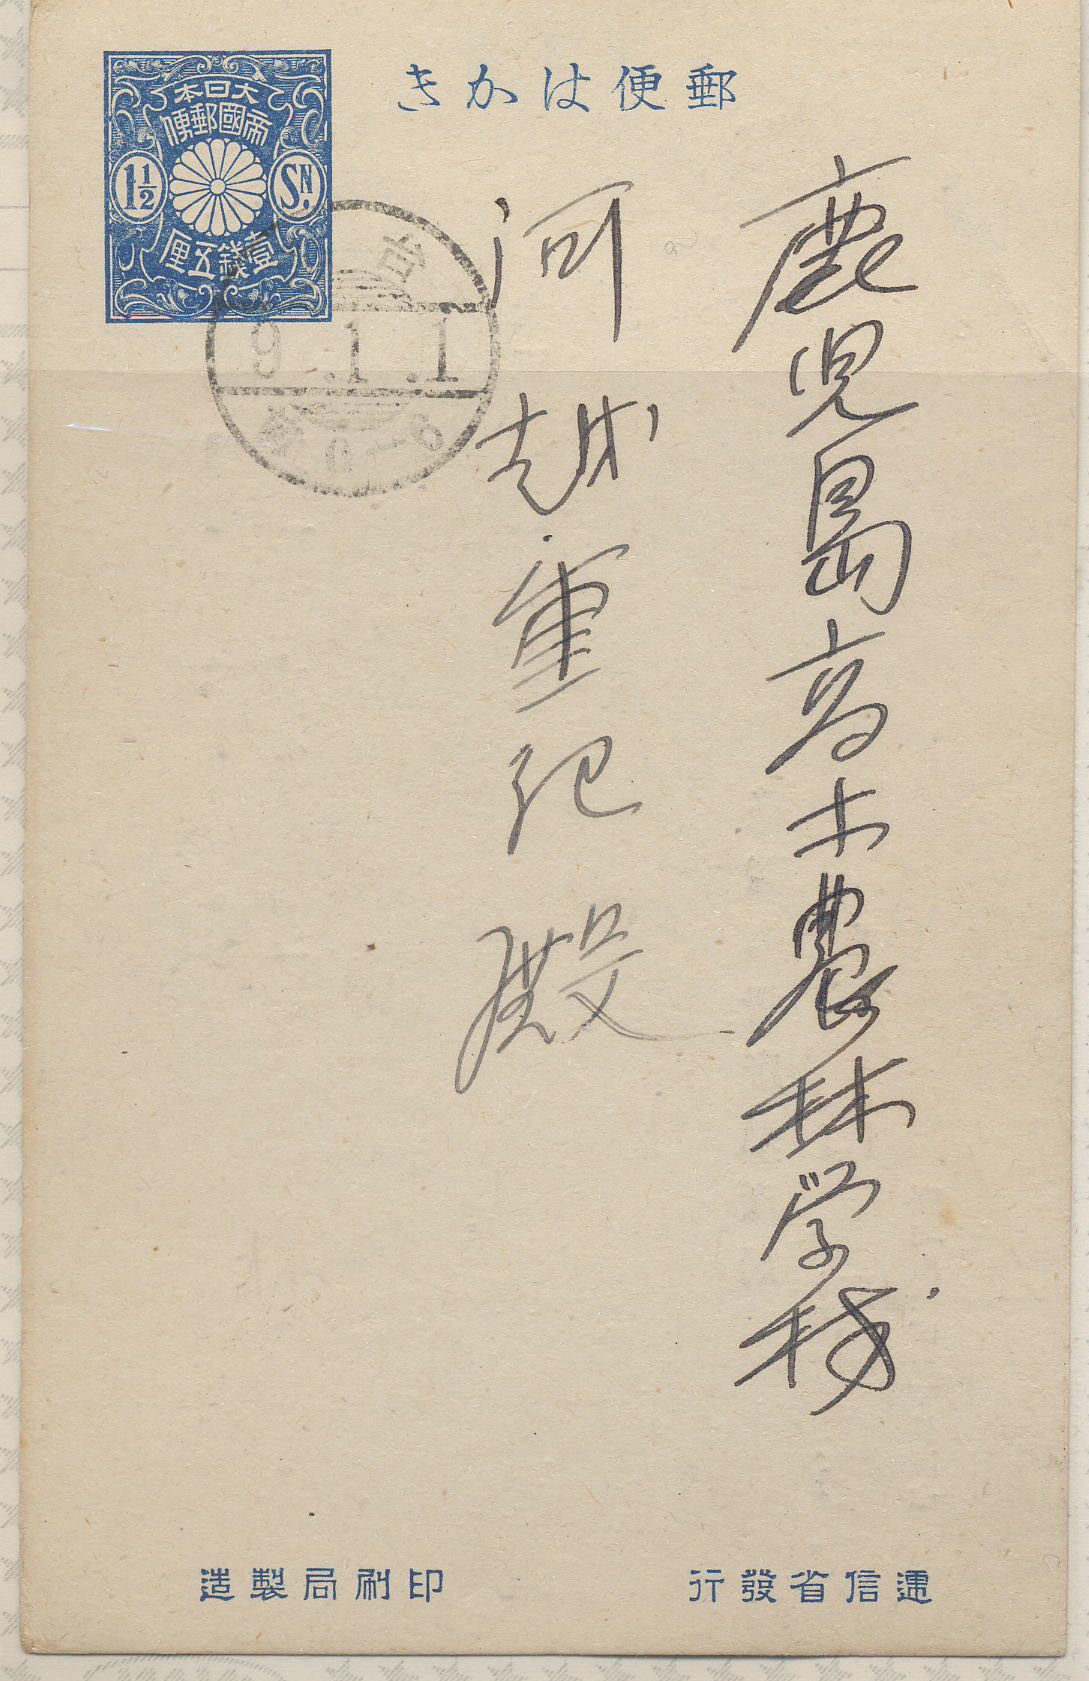 郵便はかき
大日本
帝國郵便
1½
SN.
壹錢五厘
台
9.1.1
0-6
鹿児島高等農林学校
河越重紀殿
逓信省發行
印刷局製造